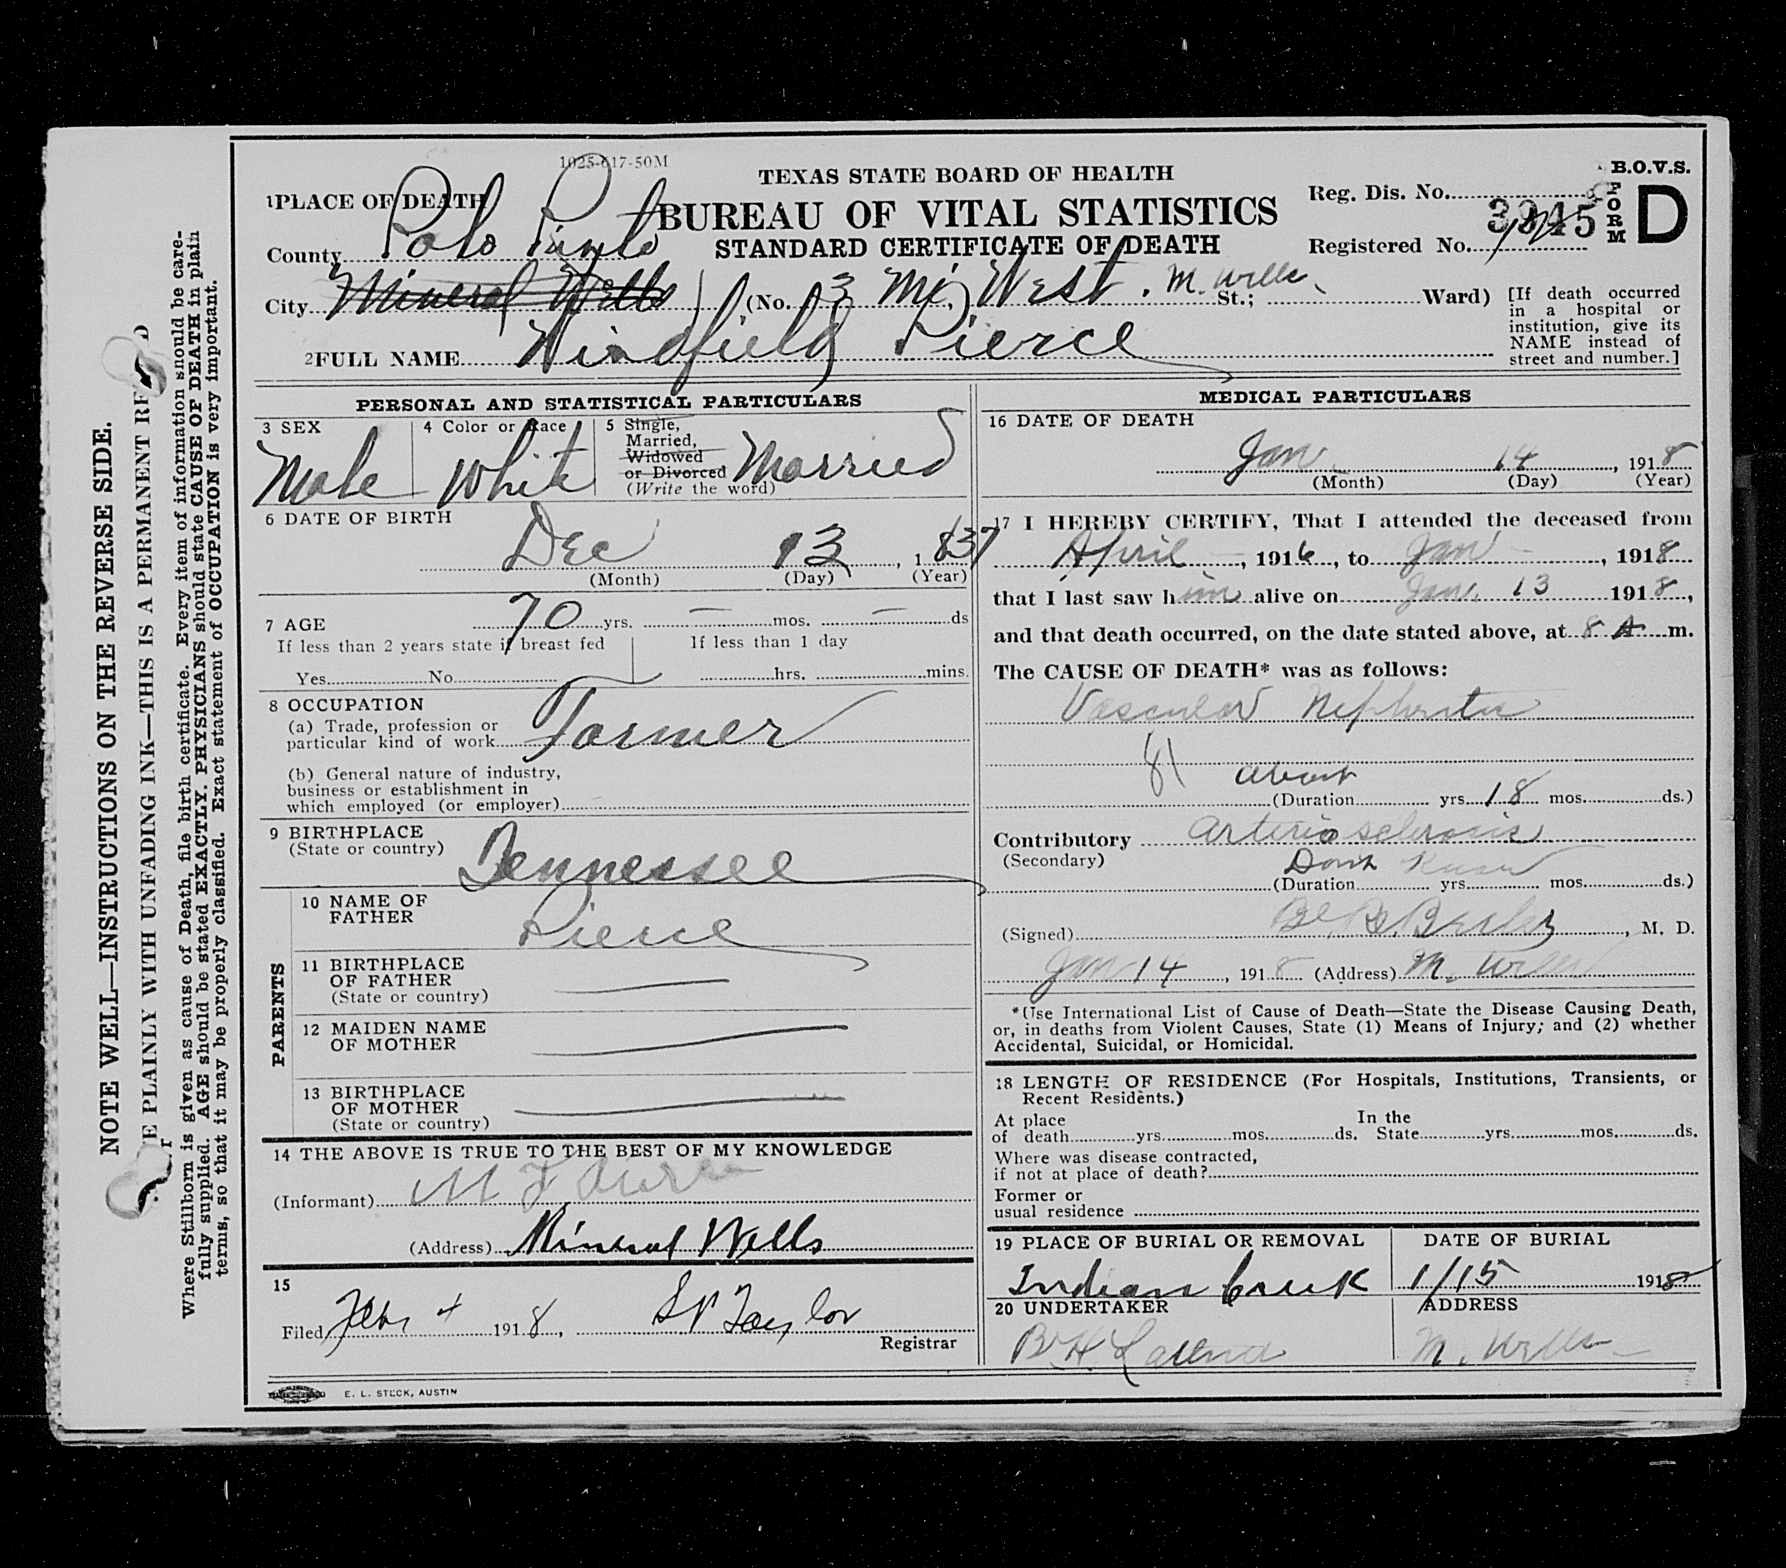 1025-617-50M
TEXAS STATE BOARD OF HEALTH
BUREAU OF VITAL STATISTICS
STANDARD CERTIFICATE OF DEATH
B.O.V.S.
FORM D
Reg. Dis. No.
3945
Registered No.
1 PLACE OF DEATH
County Palo Pinto
City Mineral Wells (No. 3 Mi West. M. Wells St.; Ward)
[If death occurred
in a hospital or
institution, give its
NAME instead of
street and number.]
2 FULL NAME Windfield Pierce
PERSONAL AND STATISTICAL PARTICULARS
3 SEX
Male
4 Color or Race
White
5 Single,
Married,
Widowed
or Divorced
(Write the word)
Married
6 DATE OF BIRTH
Dec 13, 1837
(Month) (Day) (Year)
7 AGE 70 yrs. — mos. — ds
If less than 2 years state if breast fed
Yes No
If less than 1 day
hrs. mins.
8 OCCUPATION
(a) Trade, profession or
particular kind of work Farmer
(b) General nature of industry,
business or establishment in
which employed (or employer)
9 BIRTHPLACE
(State or country) Tennessee
PARENTS
10 NAME OF
FATHER Pierce
11 BIRTHPLACE
OF FATHER
(State or country)
12 MAIDEN NAME
OF MOTHER
13 BIRTHPLACE
OF MOTHER
(State or country)
14 THE ABOVE IS TRUE TO THE BEST OF MY KNOWLEDGE
(Informant) M F
(Address) Mineral Wells
15
Filed Feb 4 1918, Taylor
Registrar
E. L. STECK, AUSTIN
MEDICAL PARTICULARS
16 DATE OF DEATH
Jan. 14, 1918
(Month) (Day) (Year)
17 I HEREBY CERTIFY, That I attended the deceased from
April, 1916, to Jan, 1918
that I last saw him alive on Jan. 13 1918,
and that death occurred, on the date stated above, at 8 A m.
The CAUSE OF DEATH* was as follows:
Vascular Nephritis
81 about
(Duration yrs. 18 mos. ds.)
Contributory Arteriosclerosis
(Secondary)
Dont Know
(Duration yrs. mos. ds.)
(Signed) , M. D.
Jan 14, 1918 (Address) M. Wells
*Use International List of Cause of Death—State the Disease Causing Death,
or, in deaths from Violent Causes, State (1) Means of Injury; and (2) whether
Accidental, Suicidal, or Homicidal.
18 LENGTH OF RESIDENCE (For Hospitals, Institutions, Transients, or
Recent Residents.)
At place
of death yrs. mos. ds.
In the
State yrs. mos. ds.
Where was disease contracted,
if not at place of death?
Former or
usual residence
19 PLACE OF BURIAL OR REMOVAL
Indian Creek
DATE OF BURIAL
1/15 1918
20 UNDERTAKER
B. H.
ADDRESS
M. Wells
NOTE WELL—INSTRUCTIONS ON THE REVERSE SIDE.
E PLAINLY WITH UNFADING INK—THIS IS A PERMANENT RE D
Where Stillborn is given as cause of Death, file birth certificate. Every item of information should be care-
fully supplied. AGE should be stated EXACTLY. PHYSICIANS should state CAUSE OF DEATH in plain
terms, so that it may be properly classified. Exact statement of OCCUPATION is very important.